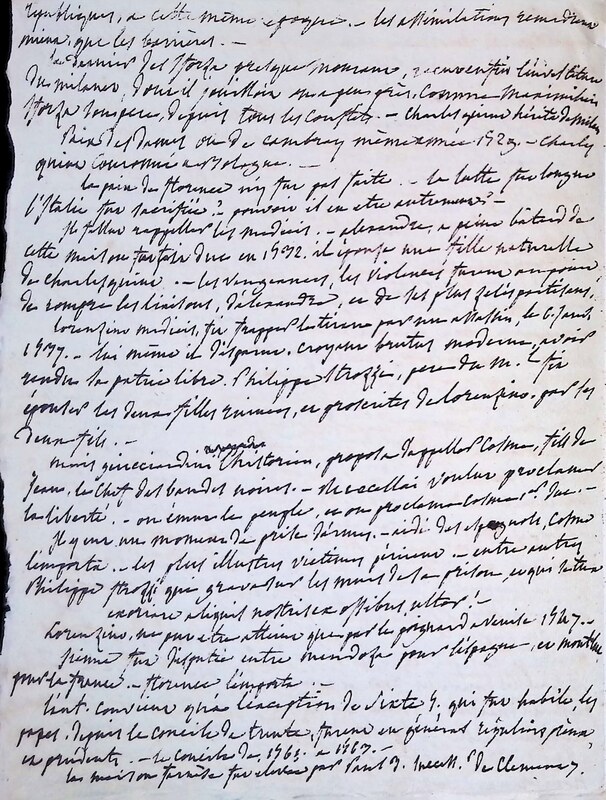 républiques, à cette même époque. - les assimilations
mieux, que les barrières. -
le dernier des Sforza presque mourant, l'investiture
du milanez, dont il jouissoit Maximilien
Sforza depuis tous les conflits. - Charles quint hérite de milan
Paix des Dames ou de cambray même année 1529 - Charles
quint couronné à Bologne. -
la paix de florence n'y fut pas faite. - la lutte fut longue
l'Italie fut sacrifiée. - pouvoit il en etre autrement? -
il fallut rappeller les medicis. - alexandre, à peine bâtard de
cette maison fut fait duc en 1532. il épousa une fille naturelle
de charles quint. - les vengeances, les violences, furent au point
de rompre les liaisons, d'alexandre, et de ses plus zelés partisans,
Lorenzino medicis, fit frapper le tiran par un assassin, le 6. janv.
1537. - lui même croyant brutus moderne, avoir
rendu sa patrie libre. Philippe Strozzi, fit
épouser les deux filles et proscrites de Lorenzino, par ses
deux fils. -
mais guicciardini l'historien, proposa d'appeller Cosme, fils de
Jean, le chef des bandes noires. - Rucellai voulut proclamer
la liberté. - on émut le peuple, et on proclama Cosme, duc. -
Il y eut un moment de prise d'armes. - aidé des espagnols, Cosme
l'emporta. - les plus illustres victimes périrent - entre autres
Philippe Strozzi qui grava sur les murs de sa prison, et qui se tua
exoriare aliquis nostris ex ossibus ultor! -
Lorenzino, ne put etre atteint que par le poignard à Venise 1547. -
Sienne fut disputée entre mendoza pour l'espagne - et montluc
pour la france. - florence l'emporta. -
Sixte 5. qui fut habile, les
papes, depuis le concile de trente, furent en général réguliers,
et prudents. - le concile de, 1545. à 1563. -
la maison farnèse fut elevée par Paul 3. de Clement 7.